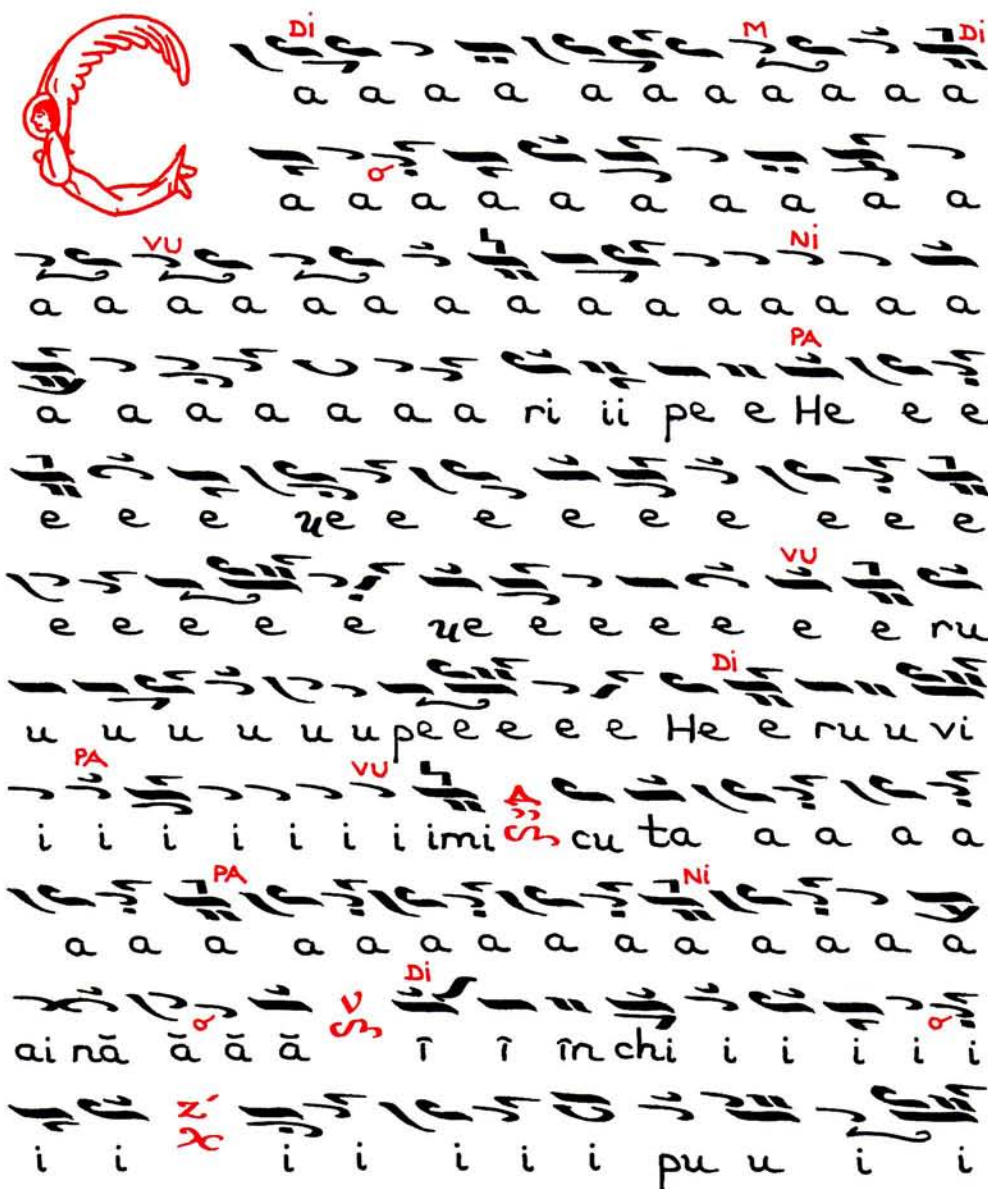 Di M Di
C a a a a a a a a a a a
a a a a a a a a a a
VU Ni
a a a a a a a a a a a a a a a
PA
a a a a a a a ri ii pe e He e e
e e e ue e e e e e e e e
VU
e e e e e ue e e e e e e ru
Di
u u u u u u pe e e e e He e ru u vi
PA VU
i i i i i i imi cu ta a a a a
PA Ni
a a a a a a a a a a a a a a
Di
ai nă ă ă ă î î în chi i i i i i
Z΄
i i i i i i i pu u i i